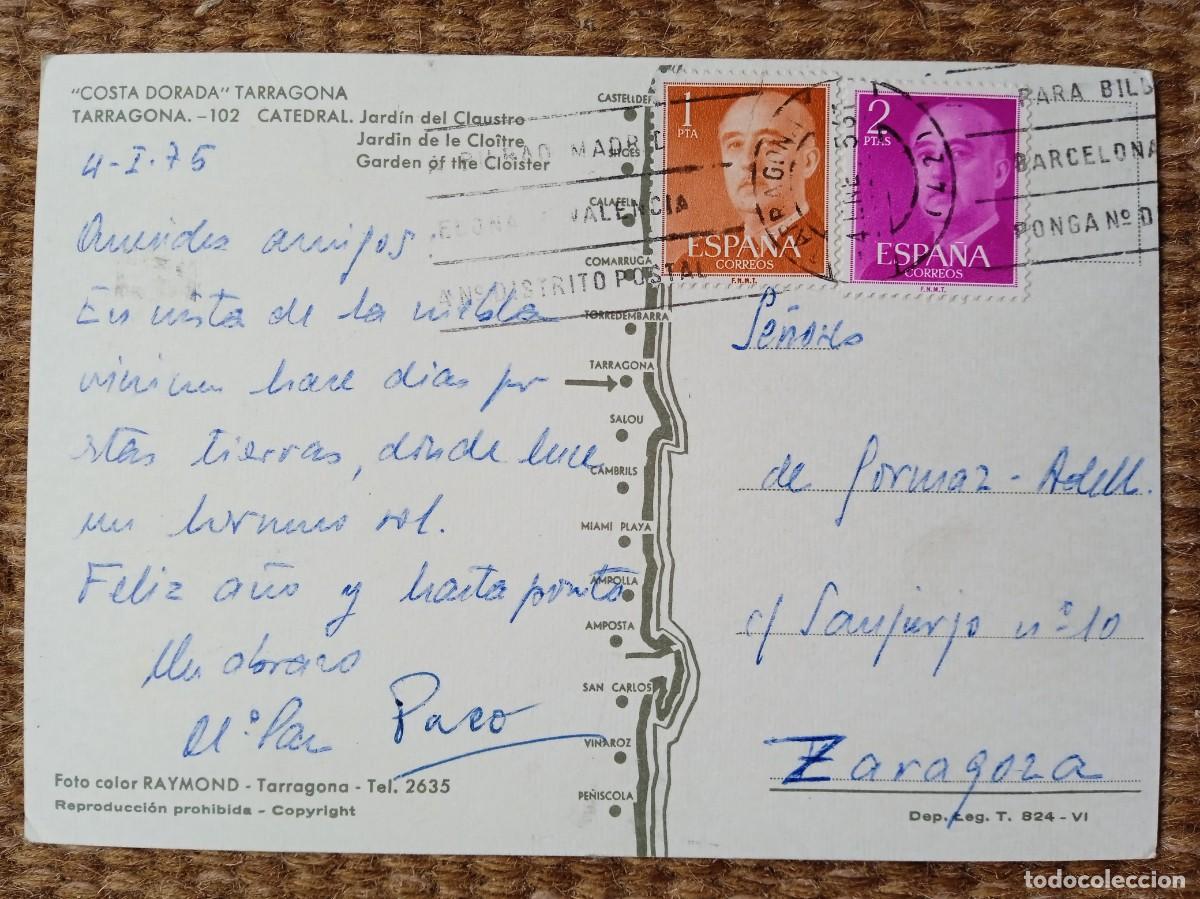 "COSTA DORADA" TARRAGONA
TARRAGONA. -102 CATEDRAL. Jardín del Claustro
Jardin de le Cloître
Garden of the Cloister
4-I-75
Queridos amigos
En vista de la niebla
vinimos hace dias por
estas tierras, donde luce
un hermoso sol.
Feliz año y hasta pronto
Un abrazo
Mª Paz Paco
Foto color RAYMOND - Tarragona - Tel. 2635
Reproducción prohibida - Copyright
CASTELLDEF
SITGES
CALAFELL
COMARRUGA
TORREDEMBARRA
TARRAGONA
SALOU
CAMBRILS
MIAMI PLAYA
AMPOLLA
AMPOSTA
SAN CARLOS
VINAROZ
PEÑISCOLA
BILBAO MADRI
ELONA VALENCIA
A Nº DISTRITO POSTAL
1 PTA
ESPAÑA
CORREOS
F.N.M.T.
2 PTAS
ESPAÑA
CORREOS
F.N.M.T.
TARRAGONA
(42)
PARA BILB
BARCELONA
PONGA Nº D
Señores
de Gormaz - Adell.
c/ Sanjurjo nº 10
Zaragoza
Dep. Leg. T. 824 - VI
todocoleccion